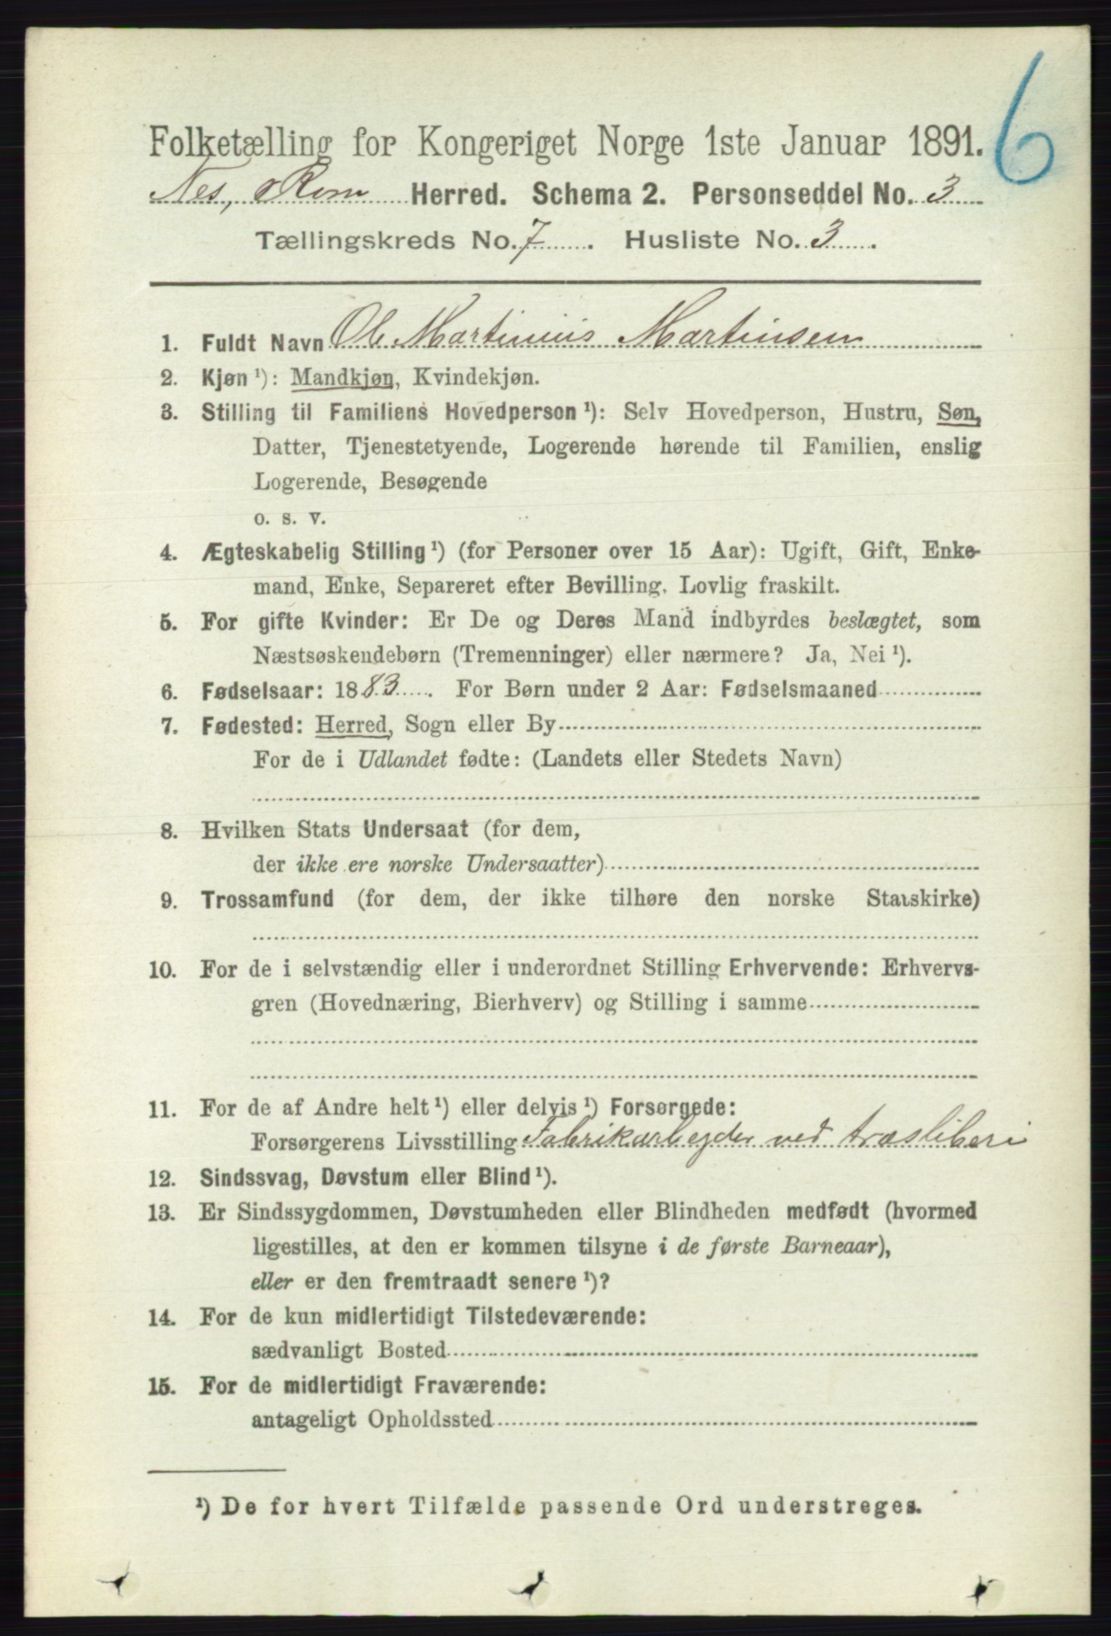 6
Folketælling for Kongeriget Norge 1ste Januar 1891.
Nes, Rom Herred. Schema 2. Personseddel No. 3
Tællingskreds No. 7. Husliste No. 3.
1. Fuldt Navn Ole Martinius Martinsen
2. Kjøn ¹): Mandkjøn, Kvindekjøn.
3. Stilling til Familiens Hovedperson ¹): Selv Hovedperson, Hustru, Søn,
Datter, Tjenestetyende, Logerende hørende til Familien, enslig
Logerende, Besøgende
o. s. v.
4. Ægteskabelig Stilling ¹) (for Personer over 15 Aar): Ugift, Gift, Enke-
mand, Enke, Separeret efter Bevilling. Lovlig fraskilt.
5. For gifte Kvinder: Er De og Deres Mand indbyrdes beslægtet, som
Næstsøskendebørn (Tremenninger) eller nærmere? Ja, Nei ¹).
6. Fødselsaar: 1883. For Børn under 2 Aar: Fødselsmaaned
7. Fødested: Herred, Sogn eller By
For de i Udlandet fødte: (Landets eller Stedets Navn)
8. Hvilken Stats Undersaat (for dem,
der ikke ere norske Undersaatter)
9. Trossamfund (for dem, der ikke tilhøre den norske Statskirke)
10. For de i selvstændig eller i underordnet Stilling Erhvervende: Erhvervs-
gren (Hovednæring, Bierhverv) og Stilling i samme
11. For de af Andre helt ¹) eller delvis ¹) Forsørgede:
Forsørgerens Livsstilling Fabrikarbejder ved træsliberi
12. Sindssvag, Døvstum eller Blind ¹).
13. Er Sindssygdommen, Døvstumheden eller Blindheden medfødt (hvormed
ligestilles, at den er kommen tilsyne i de første Barneaar),
eller er den fremtraadt senere ¹)?
14. For de kun midlertidigt Tilstedeværende:
sædvanligt Bosted
15. For de midlertidigt Fraværende:
antageligt Opholdssted
¹) De for hvert Tilfælde passende Ord understreges.